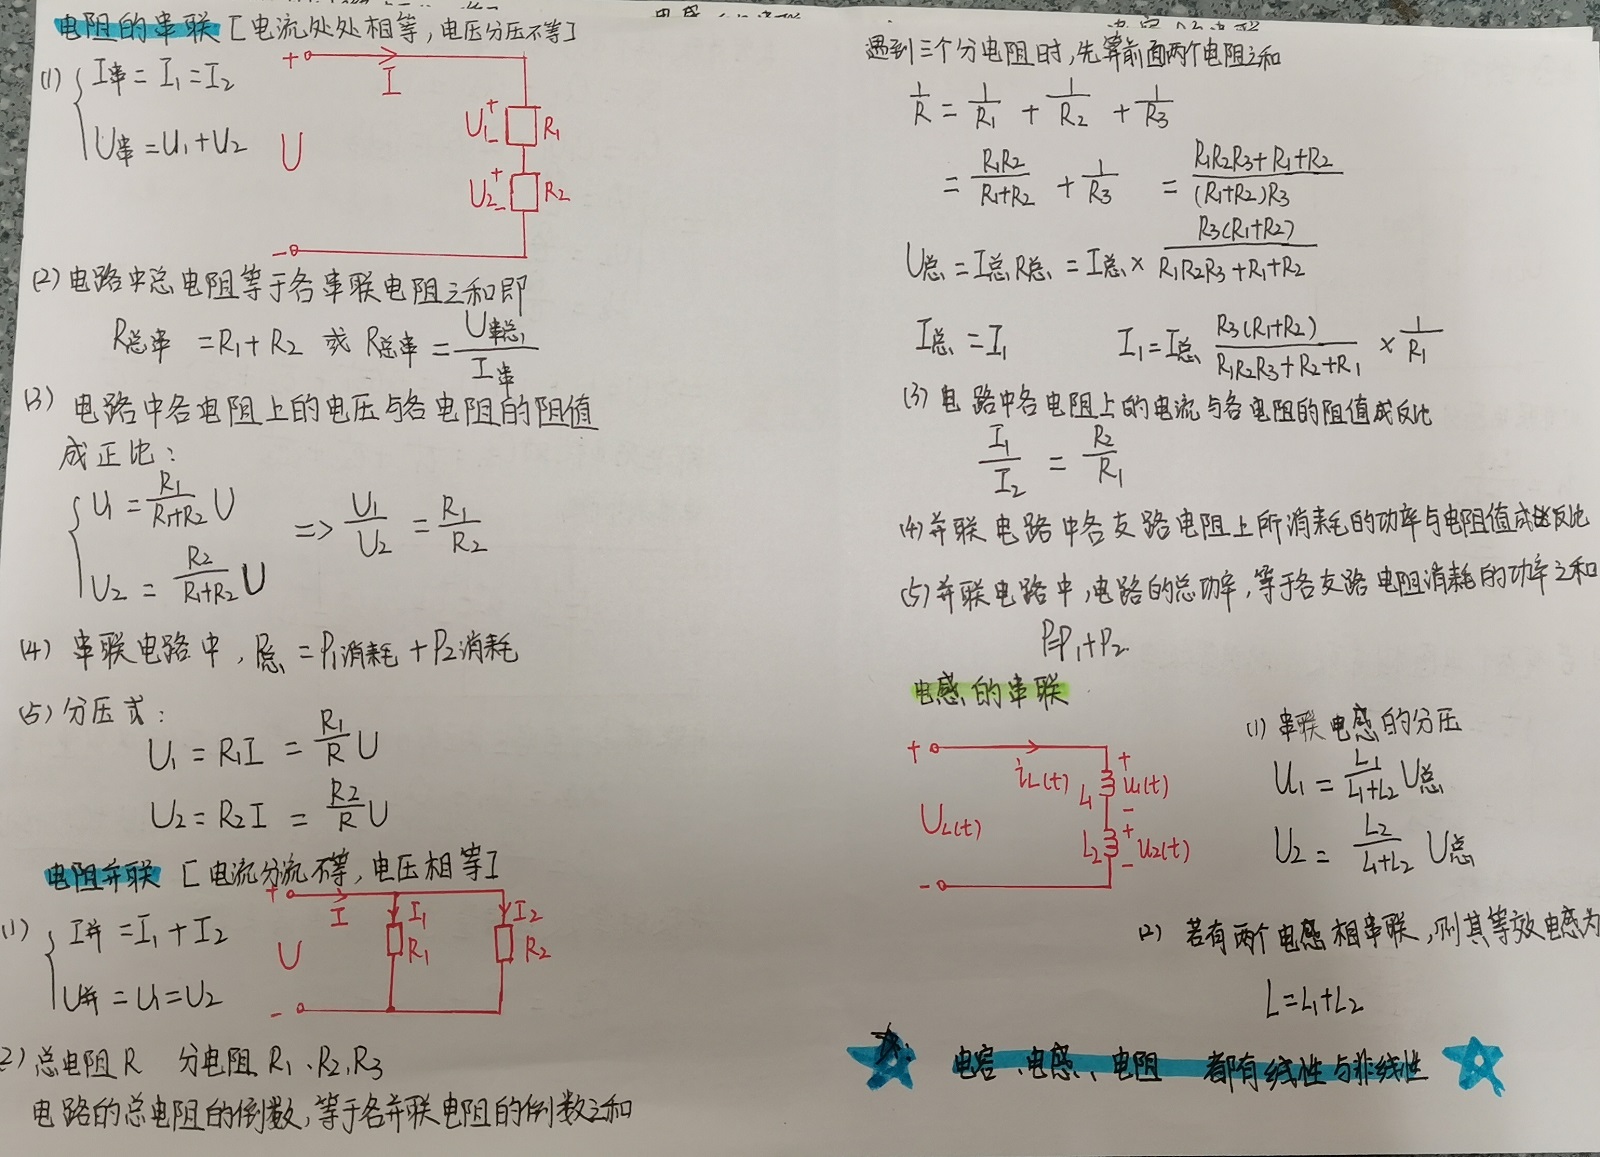 电阻的串联 [电流处处相等,电压分压不等]
(1) I串 = I₁ = I₂
U串 = U₁ + U₂
+ I
U
U₁ + - R₁
U₂ + - R₂
-
(2) 电路中总电阻等于各串联电阻之和即
R总串 = R₁ + R₂ 或 R总串 = U串总 / I串
(3) 电路中各电阻上的电压与各电阻的阻值
成正比:
U₁ = R₁/(R₁+R₂) U => U₁/U₂ = R₁/R₂
U₂ = R₂/(R₁+R₂) U
(4) 串联电路中, P总 = P₁消耗 + P₂消耗
(5) 分压式:
U₁ = R₁I = R₁/R U
U₂ = R₂I = R₂/R U
电阻并联 [电流分流不等,电压相等]
(1) I并 = I₁ + I₂
U并 = U₁ = U₂
+ I I₁ I₂
U R₁ R₂
-
2) 总电阻 R 分电阻 R₁、R₂、R₃
电路的总电阻的倒数,等于各并联电阻的倒数之和
遇到三个分电阻时,先算前面两个电阻之和
1/R = 1/R₁ + 1/R₂ + 1/R₃
= R₁R₂/(R₁+R₂) + 1/R₃ = (R₁R₂R₃+R₁+R₂)/((R₁+R₂)R₃)
U总 = I总R总 = I总 × R₃(R₁+R₂)/(R₁R₂R₃+R₁+R₂)
I总 = I₁ I₁ = I总 R₃(R₁+R₂)/(R₁R₂R₃+R₂+R₁) × 1/R₁
(3) 电路中各电阻上的电流与各电阻的阻值成反比
I₁/I₂ = R₂/R₁
(4) 并联电路中各支路电阻上所消耗的功率与电阻值成反比
(5) 并联电路中,电路的总功率,等于各支路电阻消耗的功率之和
P=P₁+P₂
电感的串联
+ iL(t)
UL(t)
L₁ + u₁(t) -
L₂ + u₂(t) -
-
(1) 串联电感的分压
U₁ = L₁/(L₁+L₂) U总
U₂ = L₂/(L₁+L₂) U总
(2) 若有两个电感相串联,则其等效电感为
L=L₁+L₂
电容、电感、电阻 都有线性与非线性